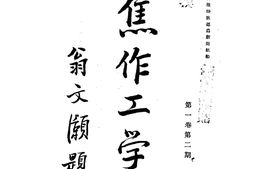 焦作工学
第一卷第二期
翁文灝題